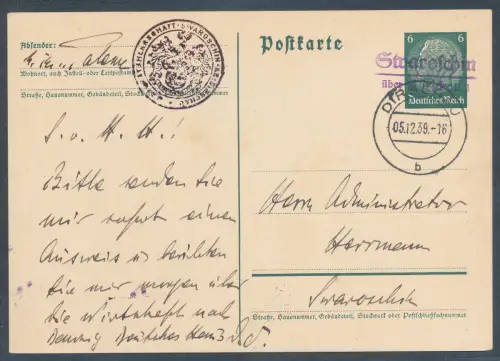 Absender:
Wohnort, auch Zustell- oder Leitpostamt
Straße, Hausnummer, Gebäudeteil, Stockwerk
Postkarte
6 6
Deutsches Reich
Swaroschin
über
05.12.39.-16
b
S. v. H. H.!
Bitte senden Sie
mir sofort einen
Ausweis u berichten
Sie mir morgen über
die Wirtschaft nach
Danzig Deutsches Haus
Herrn Administrator
Herrmann
Swaroschin
Straße, Hausnummer, Gebäudeteil, Stockwerk oder Postschließfachnummer